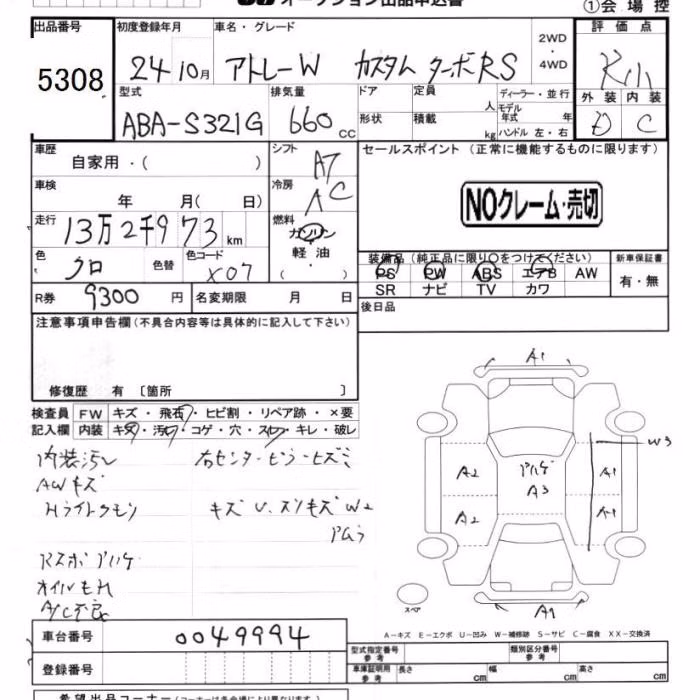 オークション出品申込書
①会場控
出品番号 5308
初度登録年月 24 10月
車名・グレード アトレーW カスタム ターボRS
2WD・4WD
評価点
外装 D 内装 C
型式 ABA-S321G
排気量 660 CC
ドア 形状
定員 人 積載 kg
ディーラー・並行
モデル年式 年
ハンドル 左・右
車歴 自家用・( )
シフト AT
車検 年 月( 日)
冷房 AC
走行 13万2千973 km
燃料 ガソリン 軽油 ・( )
色 クロ 色替 色コード X07
R券 9300 円 名変期限 月 日
セールスポイント(正常に機能するものに限ります)
NOクレーム・売切
装備品(純正品に限り○をつけてください)
PS PW ABS エアB AW
SR ナビ TV カワ
新車保証書 有・無
後日品
注意事項申告欄(不具合内容等は具体的に記入して下さい)
修復歴 有 〔箇所 〕
検査員 FW キズ・飛石・ヒビ割・リペア跡・×要
記入欄 内装 キズ・汚れ・コゲ・穴・スレ・キレ・破レ
内装汚レ 右センターピラーヒズミ
AWキズ
Hライトクモリ キズ U、スリキズ W2
アスボ アハゲ
オイルもれ
A/C不良
A1
W3
A2 アハゲ A3 A1
A2 A1
スペア A1
A−キズ E−エクボ U−凹み W−補修跡 S−サビ C−腐食 XX−交換済
車台番号 0049994
登録番号
型式指定番号 参考 類別区分番号 参考
車庫証明用 参考 長さ cm 幅 cm 高さ cm
希望出品コーナー(コーナーは各会場により異なります)